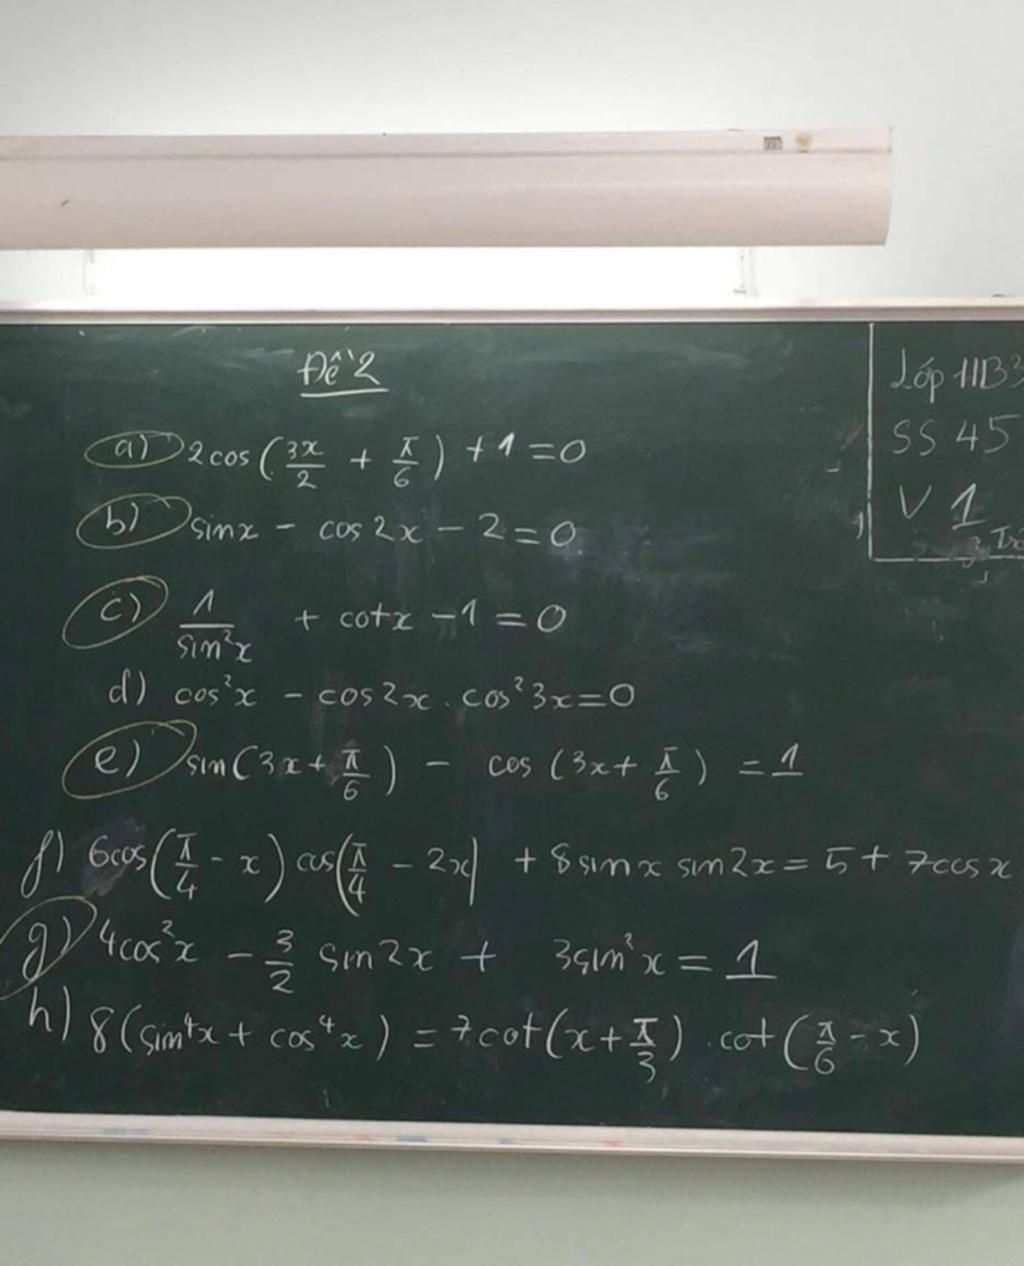 Đề 2
a) 2cos(3x/2 + π/6) + 1 = 0
b) sinx - cos2x - 2 = 0
c) 1/sin²x + cotx - 1 = 0
d) cos²x - cos2x . cos²3x = 0
e) sin(3x + π/6) - cos(3x + π/6) = 1
f) 6cos(π/4 - x) cos(π/4 - 2x) + 8sinx sin2x = 5 + 7cosx
g) 4cos²x - 3/2 sin2x + 3sin²x = 1
h) 8(sin⁴x + cos⁴x) = 7cot(x + π/3) . cot(π/6 - x)
Lớp 11B3
SS 45
V 1